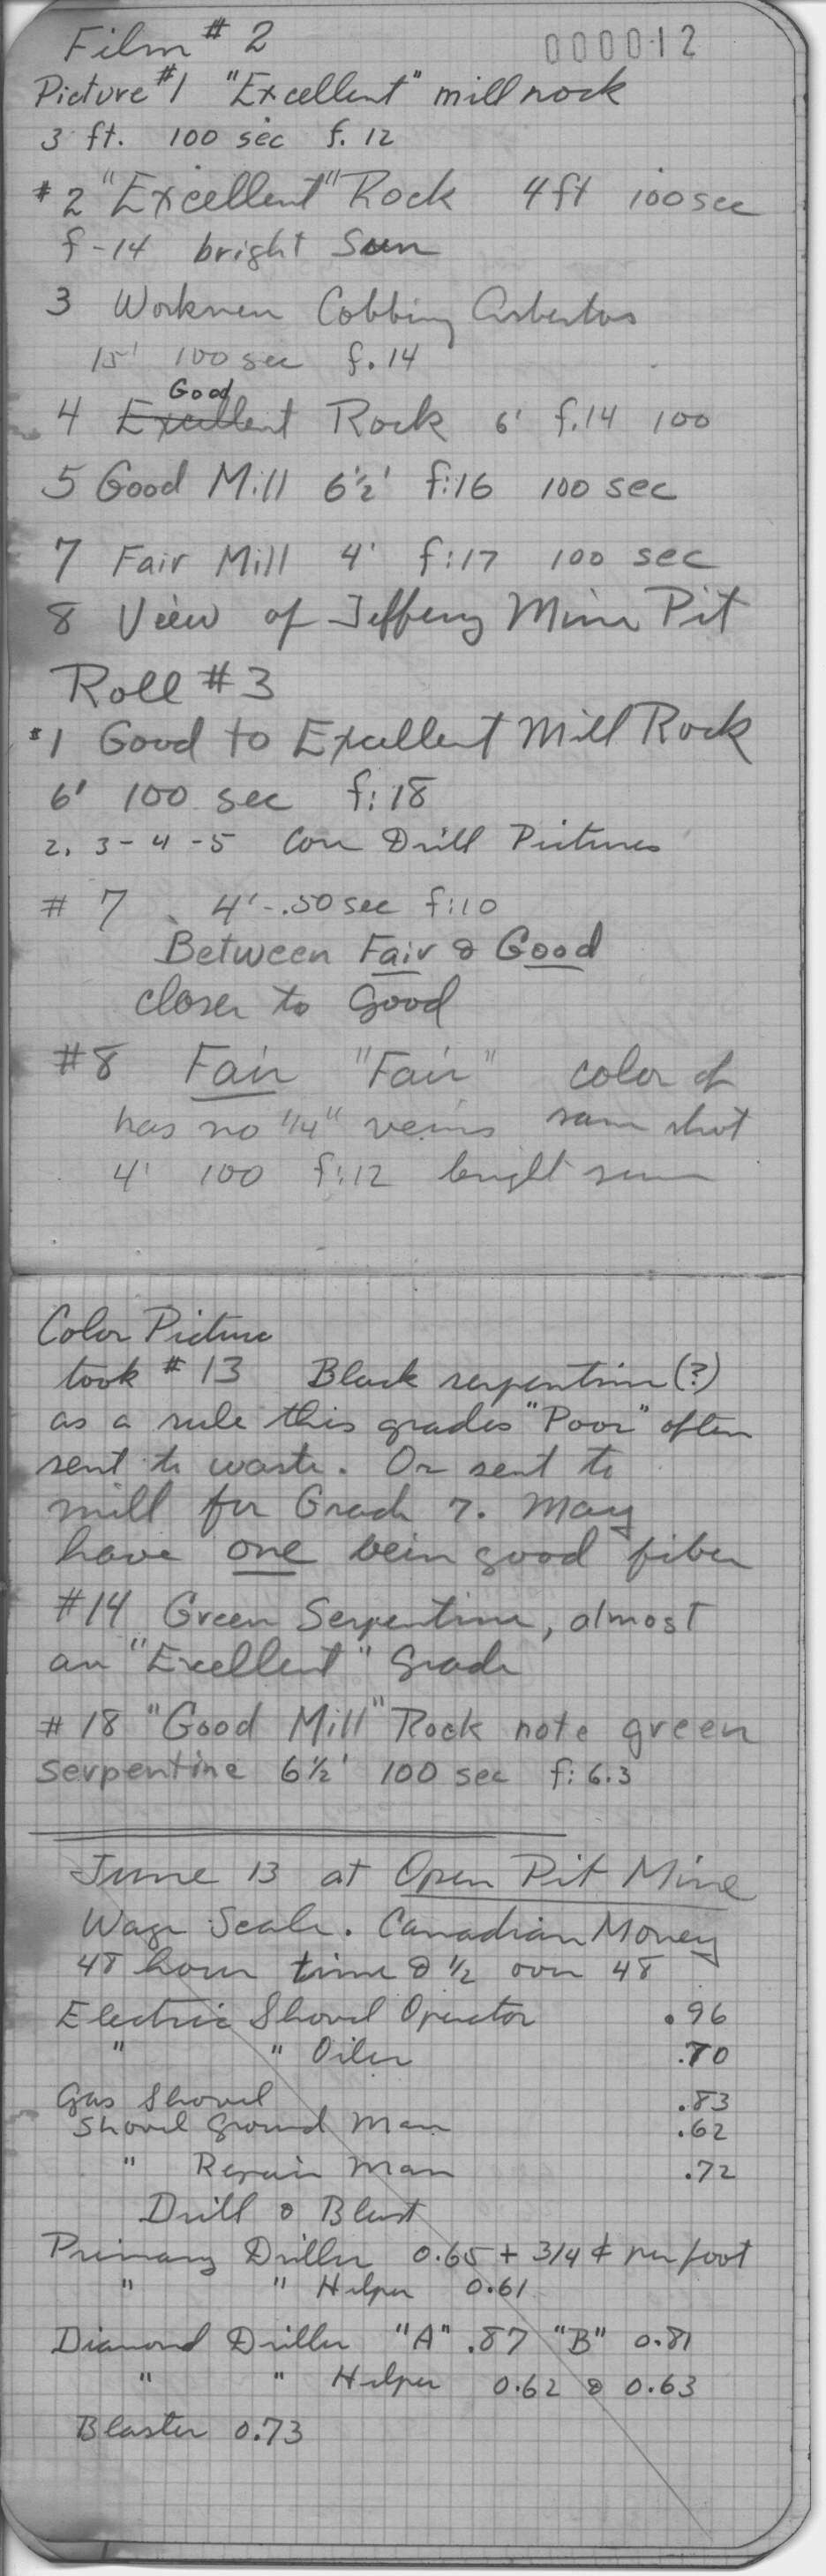 Film # 2
000012
Picture #1 "Excellent" mill rock
3 ft. 100 sec f. 12
#2 "Excellent" Rock 4ft 100 sec
f-14 bright Sun
3 Workmen Cobbing Asbestos
15' 100 sec f.14
Good
4 Excellent Rock 6' f.14 100
5 Good Mill 6½' f:16 100 sec
7 Fair Mill 4' f:17 100 sec
8 View of Jeffery Mine Pit
Roll #3
#1 Good to Excellent Mill Rock
6' 100 sec f:18
2, 3-4-5 Core Drill Pictures
# 7 4'-.50 sec f:10
Between Fair & Good
closer to Good
#8 Fair "Fair" color of
has no ¼" veins same shot
4' 100 f:12 bright sun
Color Picture
took #13 Black serpentine (?)
as a rule this grades "Poor" often
sent to waste. Or sent to
mill for Grade 7. May
have one vein good fiber
#14 Green Serpentine, almost
an "Excellent" Grade
#18 "Good Mill" Rock note green
serpentine 6½' 100 sec f: 6.3
June 13 at Open Pit Mine
Wage Scale. Canadian Money
48 hour time & ½ over 48
Electric Shovel Operator .96
" " Oiler .70
Gas Shovel .83
Shovel Ground Man .62
" Repair Man .72
Drill & Blast
Primary Driller 0.65 + 3/4 ¢ per foot
" " Helper 0.61
Diamond Driller "A" .87 "B" 0.81
" " Helper 0.62 & 0.63
Blaster 0.73